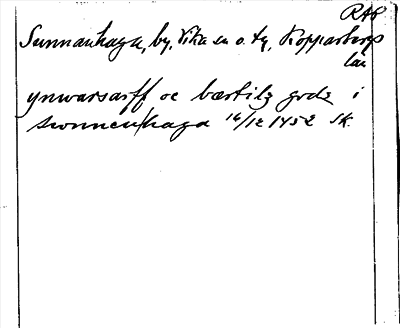 RAP
Sunnanhaga, by, Vika sn o. tg, Kopparbergs
län
ynwarsarff oc bærtilz godz i
swnnen/haga 16/12 1452 SK.